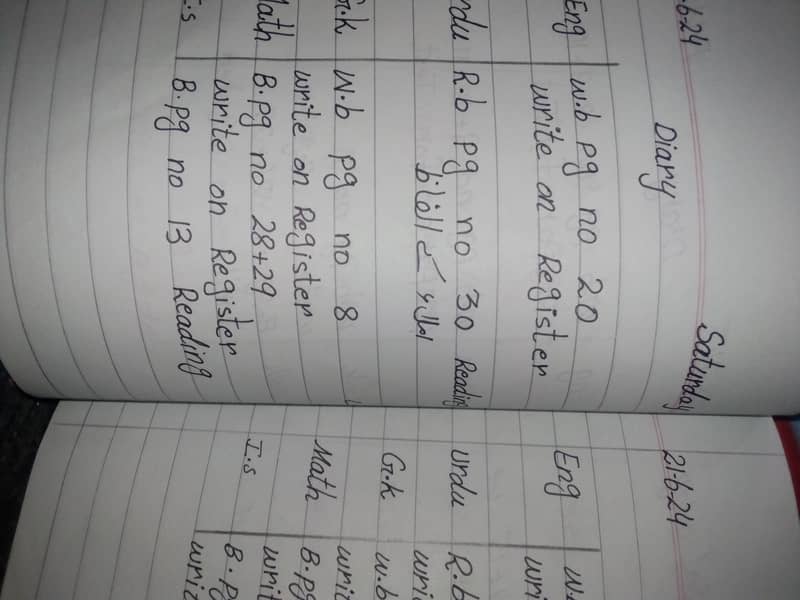 6-24 Saturday
Diary
Eng W.b pg no 20
write on Register
rdu R.b pg no 30 Reading
املاء کے الفاظ
G.k W.b pg no 8
write on Register
Math B.pg no 28+29
write on Register
I.s B.pg no 13 Reading
21-6-24
Eng
Urdu R.b
G.k W.b
Math B.pg
I.s B.pg